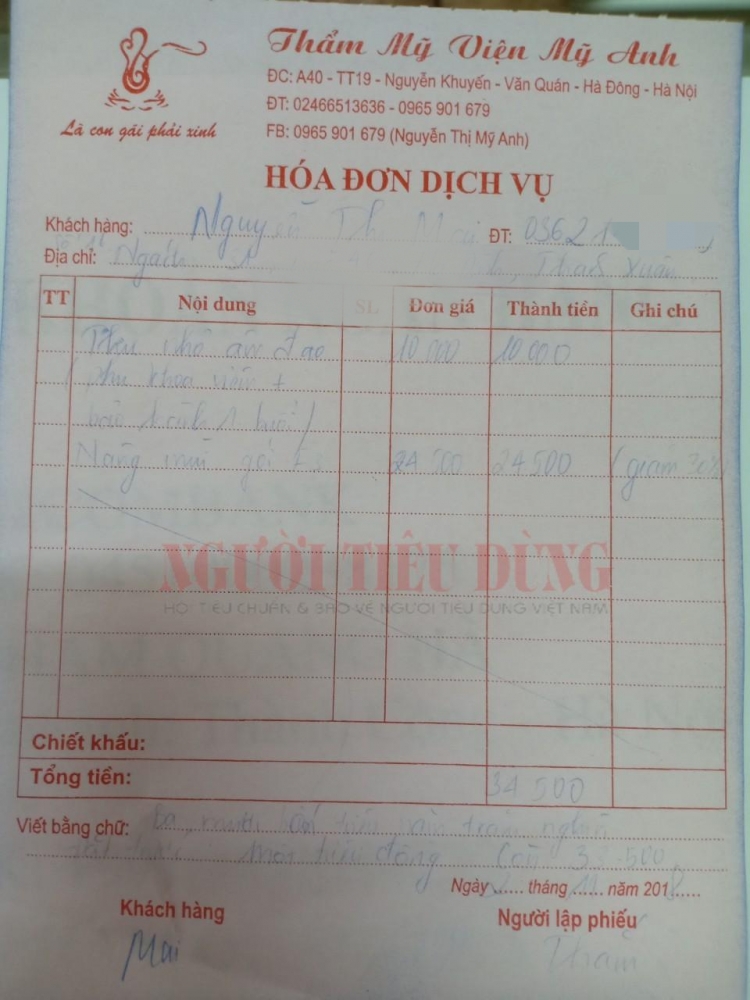 Thẩm Mỹ Viện Mỹ Anh
ĐC: A40 - TT19 - Nguyễn Khuyến - Văn Quán - Hà Đông - Hà Nội
ĐT: 02466513636 - 0965 901 679
FB: 0965 901 679 (Nguyễn Thị Mỹ Anh)
Là con gái phải xinh
HÓA ĐƠN DỊCH VỤ
Khách hàng: Nguyễn Th Mai ĐT: 03621
Địa chỉ: Ngách Xuân
TT Nội dung SL Đơn giá Thành tiền Ghi chú
10 000 10 000
bảo hành 1 buổi)
Nâng mũi gói 24 500 24 500 (giảm 30%)
NGƯỜI TIÊU DÙNG
HỘI TIÊU CHUẨN & BẢO VỆ NGƯỜI TIÊU DÙNG VIỆT NAM
Chiết khấu:
Tổng tiền: 34 500
Viết bằng chữ: Ba mươi bốn triệu năm trăm nghìn
triệu đồng Còn
Ngày tháng 11 năm 2018
Khách hàng Người lập phiếu
Mai